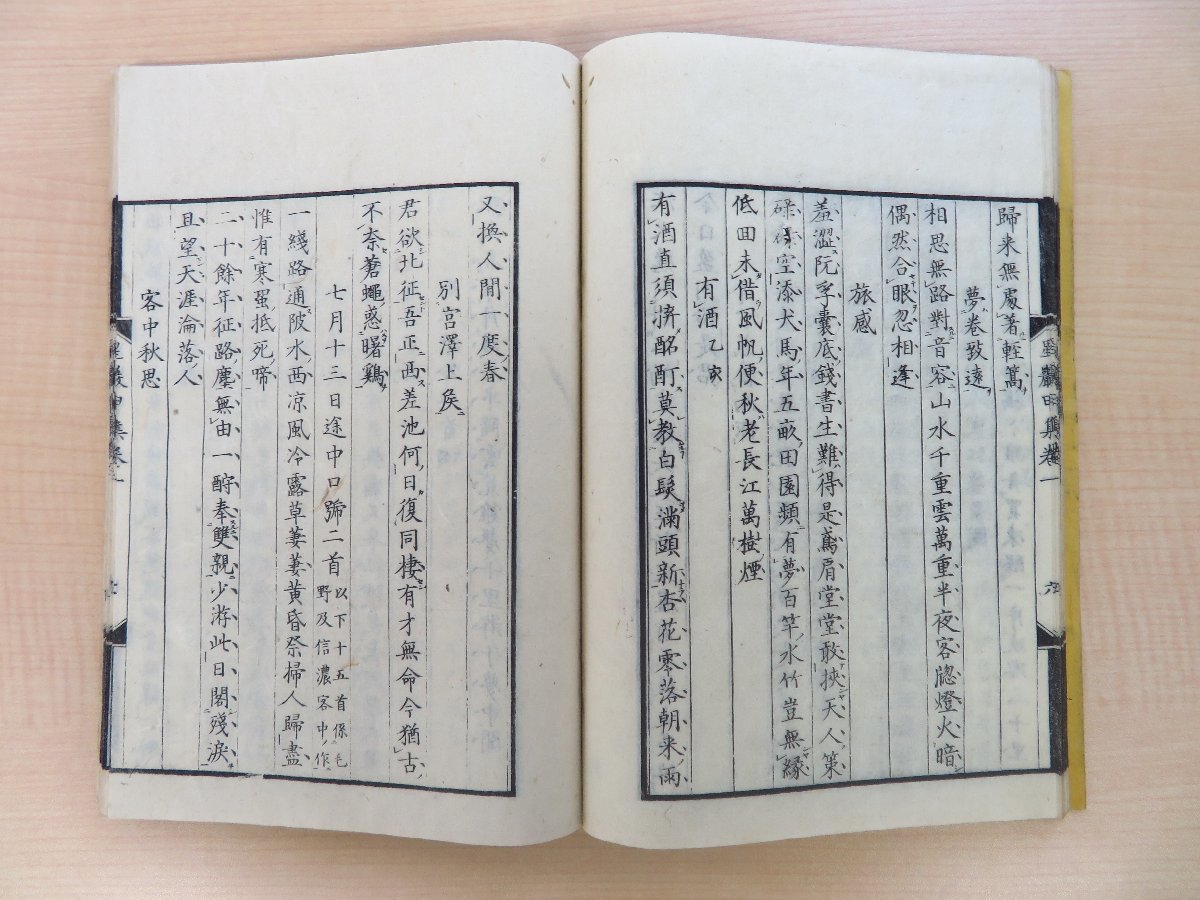 歸来無處著輊篙
夢卷致遠
相思無路對音容山水千重雲萬重半夜客牕燈火暗
偶然合眼忍相逢
旅感
羞澀阮孚囊底錢書生難得是鳶肩堂堂敢挾天人策
碌碌空添犬馬年五畝田園頻有夢百竿水竹豈無緣
低回未借風帆便秋老長江萬樹煙
有酒 乙亥
有酒直須拚酩酊莫教白髮滿頭新杏花零落朝来雨
又換人間一度春
別宮澤上矦
君欲北征吾正西差池何日復同棲有才無命今猶古
不奈蒼蠅惑曙鷄
七月十三日途中口號二首 以下十五首係毛野及信濃客中作
一綫路通陂水西凉風冷露草萋萋黄昏祭掃人歸盡
惟有寒蛩抵死啼
二十餘年征路塵無由一酹奉雙親少游此日閣殘淚
且望天涯淪落人
客中秋思